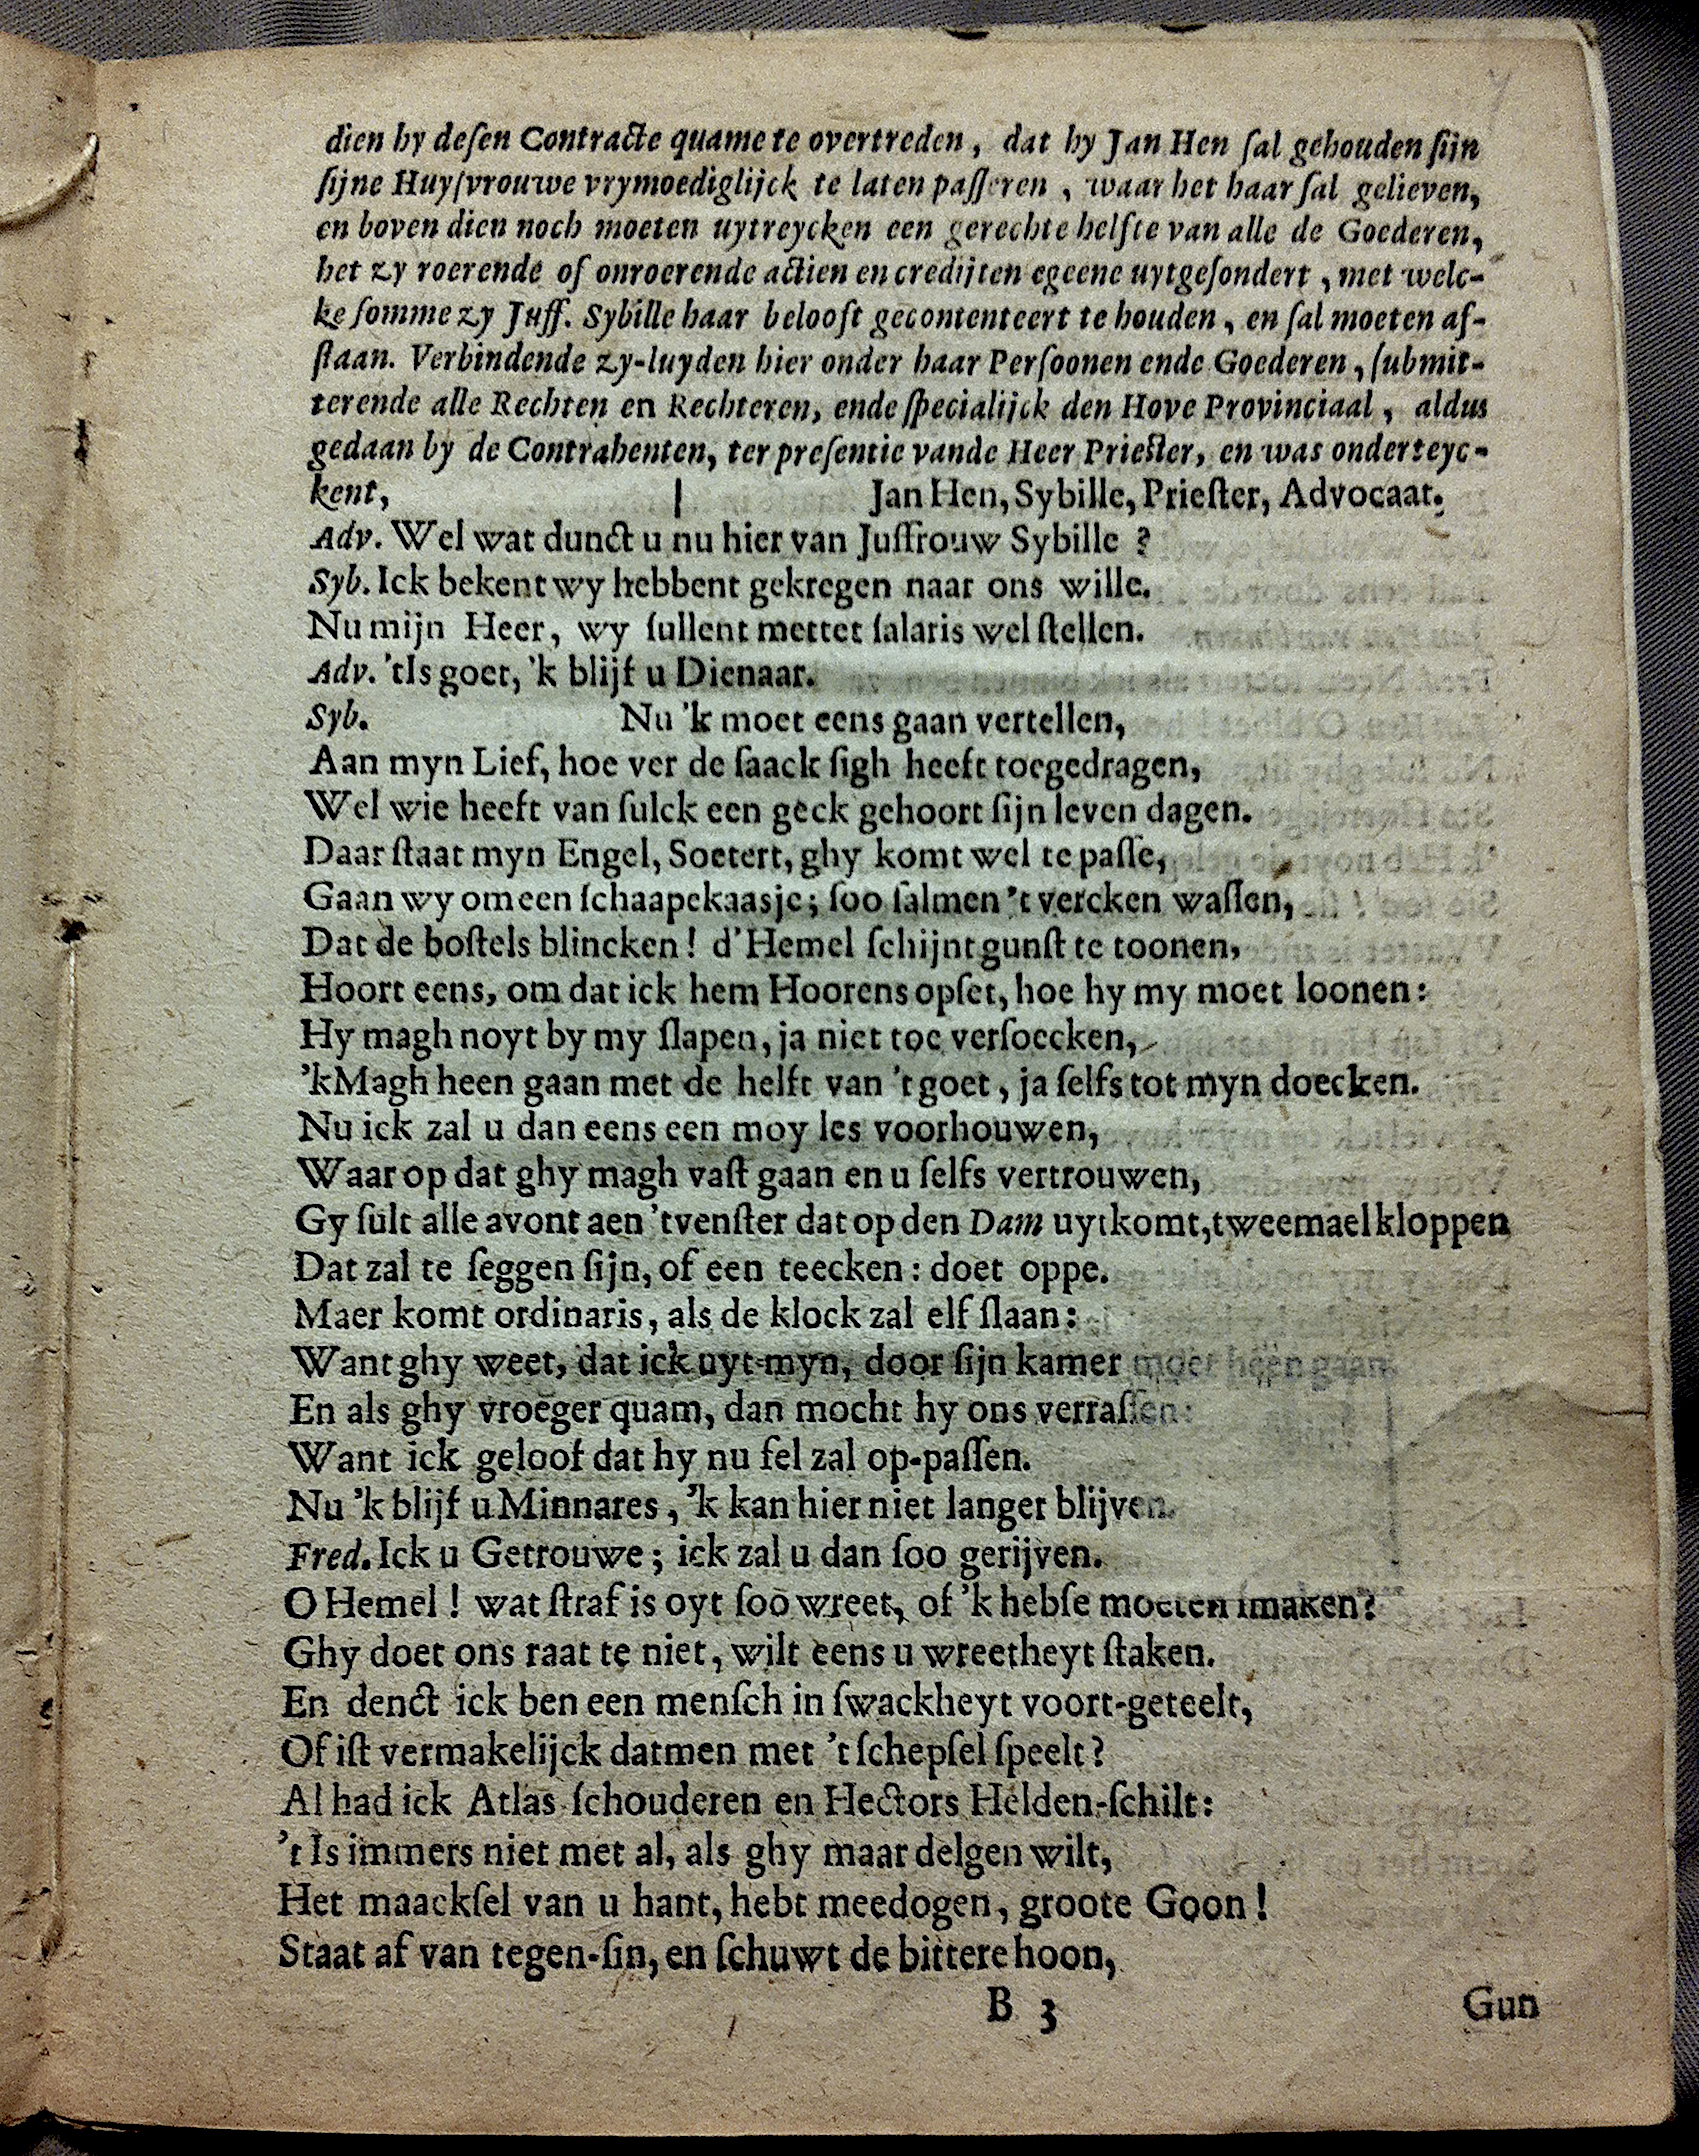 dien hy desen Contracte quame te overtreden, dat hy Jan Hen ſal gehouden ſijn
ſijne Huyſvrouwe vrymoediglijck te laten paſſeren, waar het haar ſal gelieven,
en boven dien noch moeten uytreycken een gerechte helfte van alle de Goederen,
het zy roerende of onroerende actien en credijten egeene uytgeſondert, met welc-
ke ſomme zy Juff. Sybille haar belooft gecontenteert te houden, en ſal moeten af-
ſtaan. Verbindende zy-luyden hier onder haar Perſoonen ende Goederen, ſubmit-
terende alle Rechten en Rechteren, ende ſpecialijck den Hove Provinciaal, aldus
gedaan by de Contrahenten, ter preſentie vande Heer Prieſter, en was onderteyc-
kent, | Jan Hen, Sybille, Prieſter, Advocaat.
Adv. Wel wat dunct u nu hier van Juffrouw Sybille ?
Syb. Ick bekent wy hebbent gekregen naar ons wille.
Nu mijn Heer, wy ſullent mettet ſalaris wel ſtellen.
Adv. 'tIs goet, 'k blijf u Dienaar.
Syb. Nu 'k moet eens gaan vertellen,
Aan myn Lief, hoe ver de ſaack ſigh heeft toegedragen,
Wel wie heeft van ſulck een geck gehoort ſijn leven dagen.
Daar ſtaat myn Engel, Soetert, ghy komt wel te paſſe,
Gaan wy om een ſchaapekaasje; ſoo ſalmen 't vercken waſſen,
Dat de boſtels blincken! d'Hemel ſchijnt gunſt te toonen,
Hoort eens, om dat ick hem Hoorens opſet, hoe hy my moet loonen:
Hy magh noyt by my ſlapen, ja niet toe verſoecken,
'kMagh heen gaan met de helft van 't goet, ja ſelfs tot myn doecken.
Nu ick zal u dan eens een moy les voorhouwen,
Waar op dat ghy magh vaſt gaan en u ſelfs vertrouwen,
Gy ſult alle avont aen 'tvenſter dat op den Dam uytkomt, tweemael kloppen
Dat zal te ſeggen ſijn, of een teecken: doet oppe.
Maer komt ordinaris, als de klock zal elf ſlaan:
Want ghy weet, dat ick uyt myn, door ſijn kamer moet heen gaan
En als ghy vroeger quam, dan mocht hy ons verraſſen:
Want ick geloof dat hy nu fel zal op-paſſen.
Nu 'k blijf u Minnares, 'k kan hier niet langer blijven.
Fred. Ick u Getrouwe; ick zal u dan ſoo gerijven.
O Hemel! wat ſtraf is oyt ſoo wreet, of 'k hebſe moeten ſmaken?
Ghy doet ons raat te niet, wilt eens u wreetheyt ſtaken.
En denct ick ben een menſch in ſwackheyt voort-geteelt,
Of iſt vermakelijck datmen met 't ſchepſel ſpeelt?
Al had ick Atlas ſchouderen en Hectors Helden-ſchilt:
't Is immers niet met al, als ghy maar delgen wilt,
Het maackſel van u hant, hebt meedogen, groote Goon!
Staat af van tegen-ſin, en ſchuwt de bittere hoon,
B 3 Gun